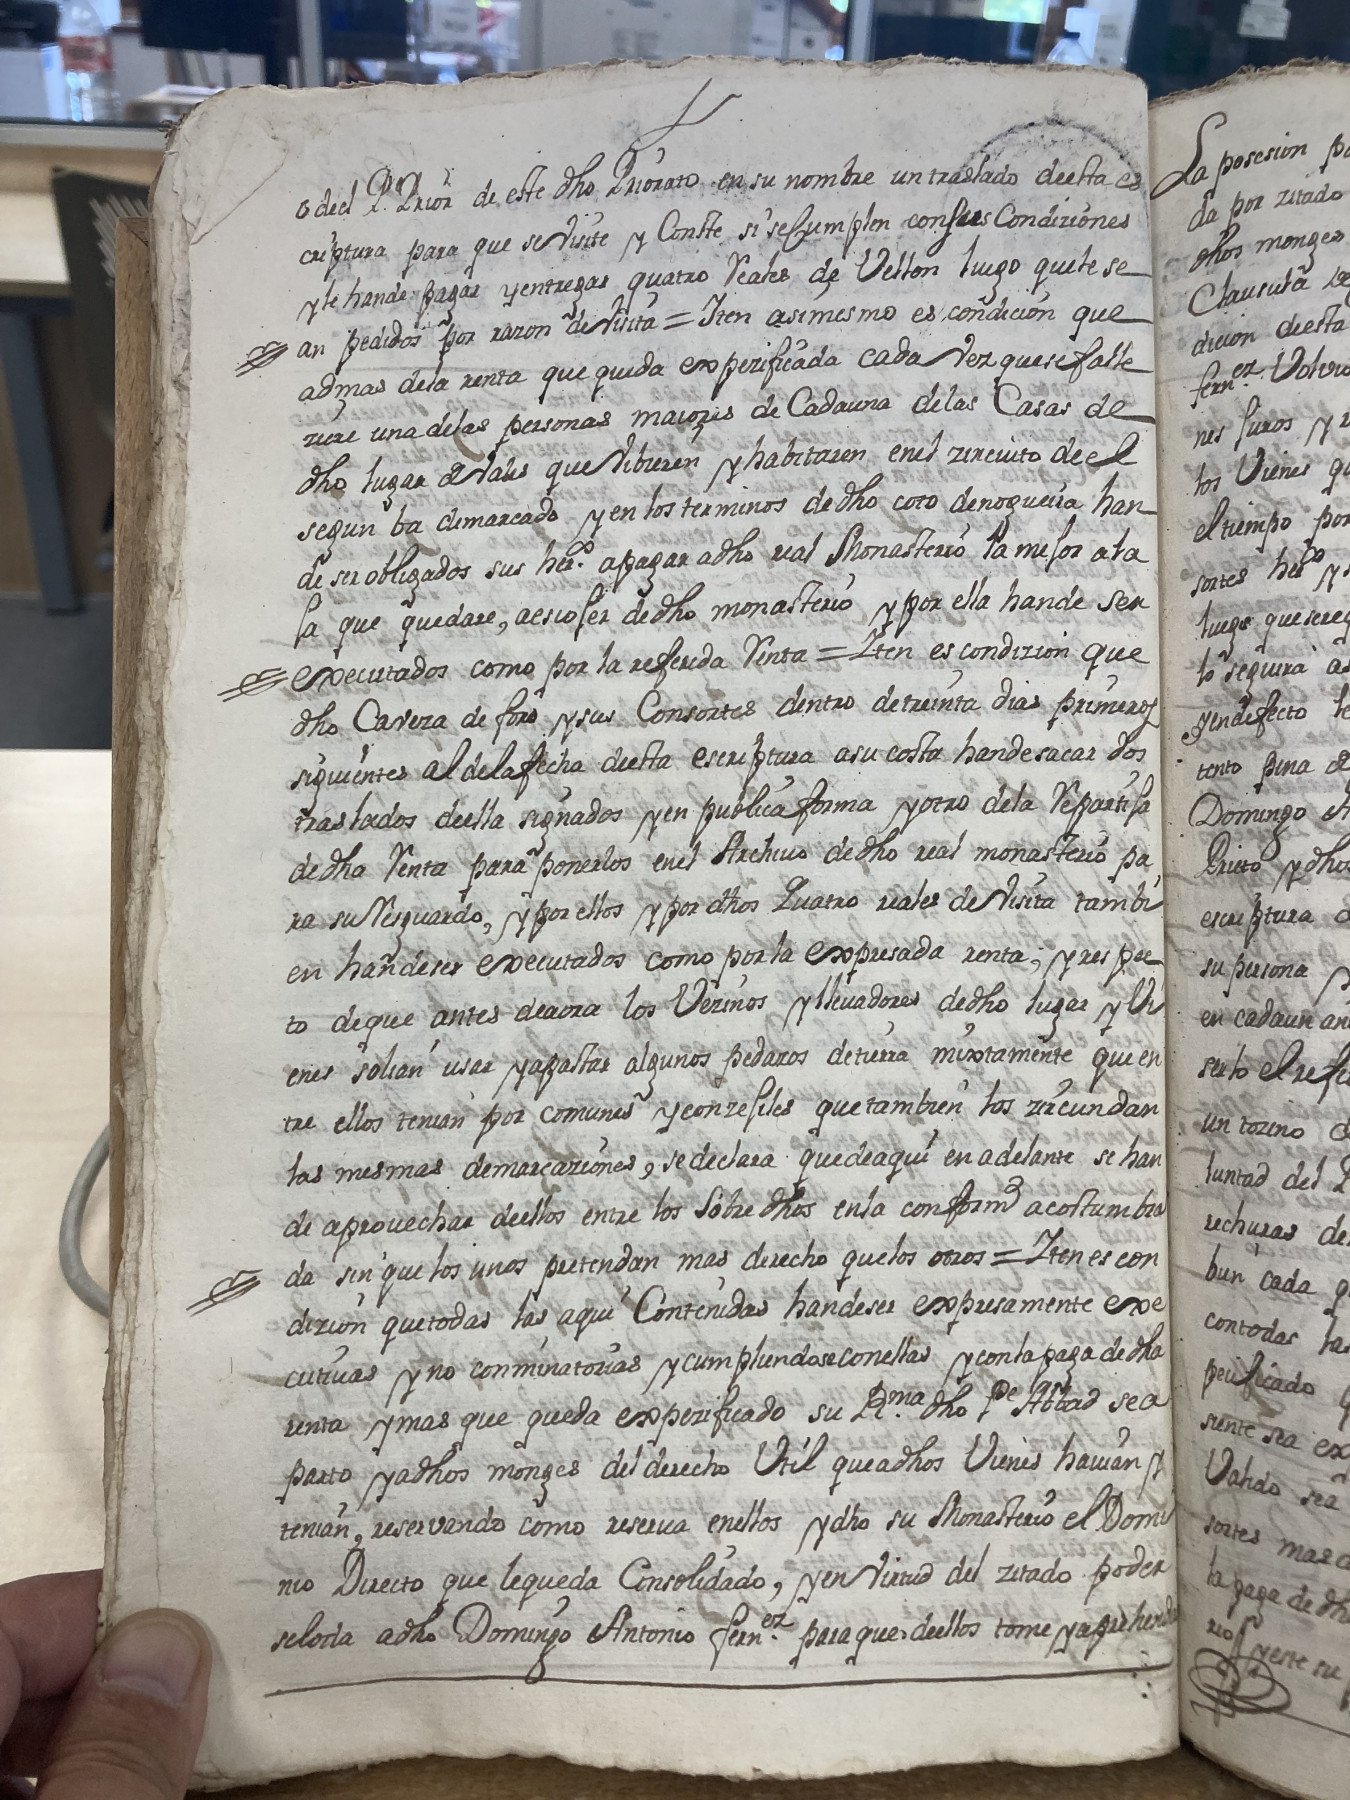 o del P. Prior de este dho Priorato en su nombre un traslado deesta es
criptura para que se Visite y Conste si se Cumplen con sus Condiziones
y le hande pagar y entregar quatro Reales de Vellon luego que le se
an pedidos por razon de Visita = Iten asimesmo es condicion que
admas dela renta que queda expezificada cada Vez que se falle
ziere una delas personas maiores de Cadauna delas Casas de
dho lugar de Vales que Vibieren y habitaren enel zircuito de el
segun ba demarcado y en los terminos de dho coto denogueira han
de ser obligados sus her.os a pagar a dho real Monasterio la mejor ala
ja que quedare, a escojer de dho monasterio y por ella hande ser
executados como por la referida Renta = Iten es condizion que
dho Caveza de foro y sus Consortes dentro detreinta dias primeros
siguientes al dela fecha deesta escriptura a su costa hande sacar dos
traslados deella signados y en publica forma y otro dela Repartija
de dha Renta para ponerlos enel Archivo de dho real monasterio pa
ra su Resguardo, y por ellos y por dhos Quatro reales de Visita tambi
en hande ser executados como por la expresada renta; y respec
to deque antes deaora los Vezinos y llevadores dedho lugar y Vi
enes solian usar y apastar algunos pedazos detierra mixtamente que en
tre ellos tenian por comunes y conrefiles que tambien los zircundan
las mesmas demarcaziones, se declara que deaqui en adelante se han
de aprovechar deellos entre los Sobre dhos enla conform.d acostumbra
da sin que los unos pretendan mas derecho que los otros = Iten es con
dizion que todas las aqui Contenidas hande ser expresamente exe
cutivas y no conminatorias y cumpliendose conellas y conla paga de dha
renta y mas que queda expezificado su R.ma dho P.e Abbad se a
parto y a dhos monges del derecho Util que a dhos Vienes havian y
tenian, reservando como reserva enellos y dho su Monasterio el Domi
nio Directo que le queda Consolidado, y en Virtud del zitado poder
se lo da a dho Domingo Antonio fern.ez para que deellos tome y aprehenda
La posesion
da por zitado
dhos monges
Clausula
dicion deesta
fern.ez
nes furos y
los Vienes
el tiempo por
sortes her.os y
luego que
lo seguira
y en defecto
tento pena
Domingo
Prieto y dhos
escriptura
su persona
en cada un
serlo el
un tozino
luntad del
rechuras de
bun cada
con todas las
peificado
siente sea
Valido sea
sortes mas
la paga de dh
rio y este su